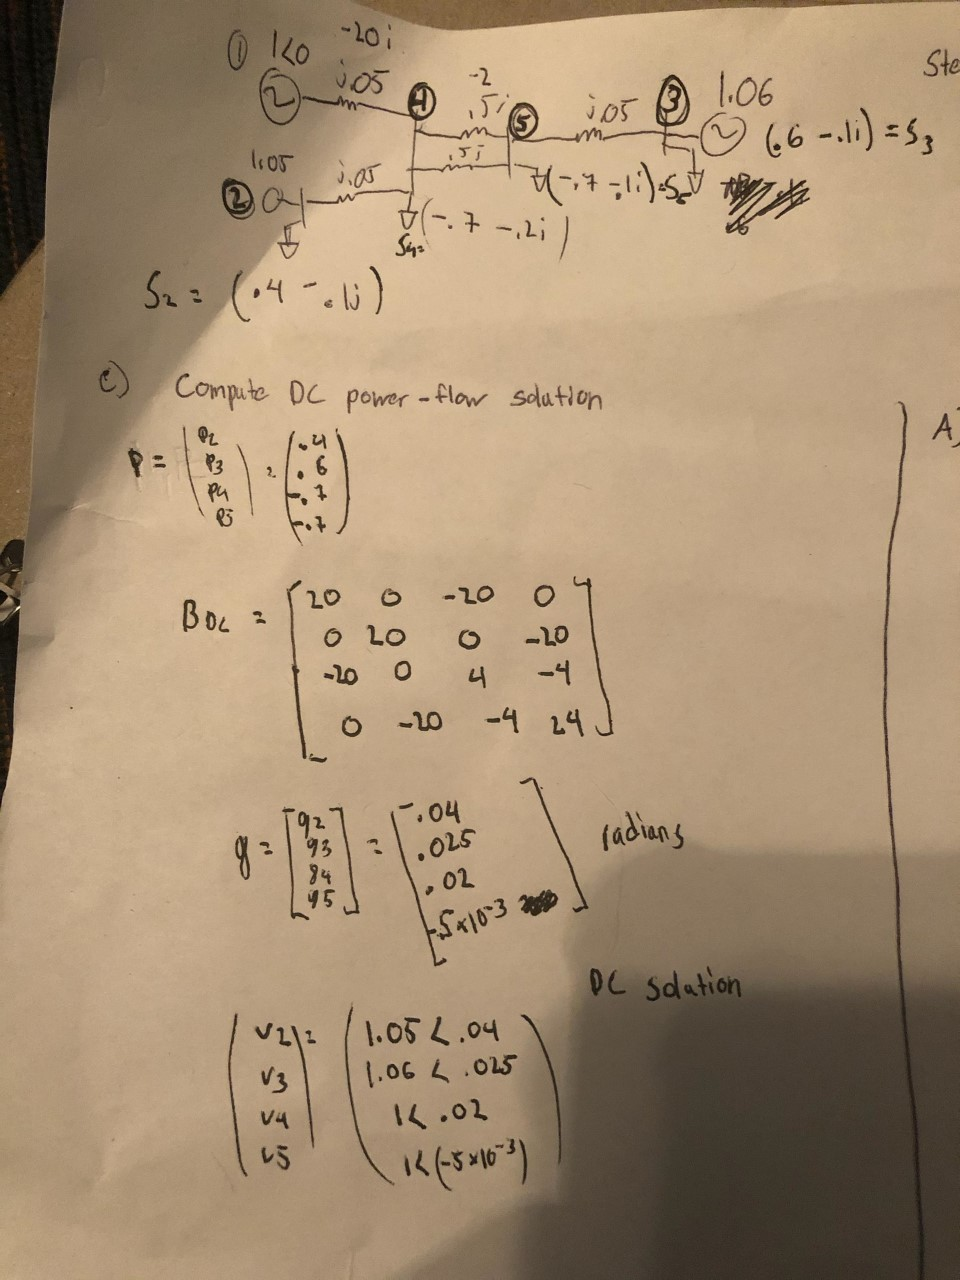 ① 1<0 -20i
j.05
④ -2
.5i
⑤ j.05 ③ 1.06
(.6 -.1i) = S3
Ste
1.05
② j.05
.5i
(-.7 -.1i)=S5
S4= (-.7 -.2i)
S2 = (.4 -.1j)
c) Compute DC power-flow solution
A)
P = (P2 P3 P4 P5) = (.4 .6 -.7 -.7)
BDC = [20 0 -20 0
0 20 0 -20
-20 0 4 -4
0 -20 -4 24]
θ = [θ2 θ3 θ4 θ5] = [-.04 .025 .02 -5x10^-3] radians
DC solution
(V2 V3 V4 V5) = (1.05 < .04
1.06 < .025
1< .02
1< (-5x10^-3))